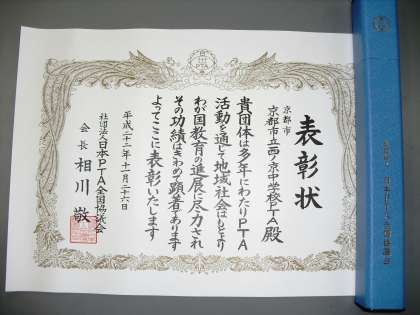 表彰状
京都市
京都市立西ノ京中学校PTA殿
貴団体は多年にわたりPTA
活動を通して地域社会はもとより
わが国教育の進展に尽力され
その功績はきわめて顕著であります
よってここに表彰いたします
平成二十二年十一月二十六日
社団法人日本PTA全国協議会
会長 相川 敬